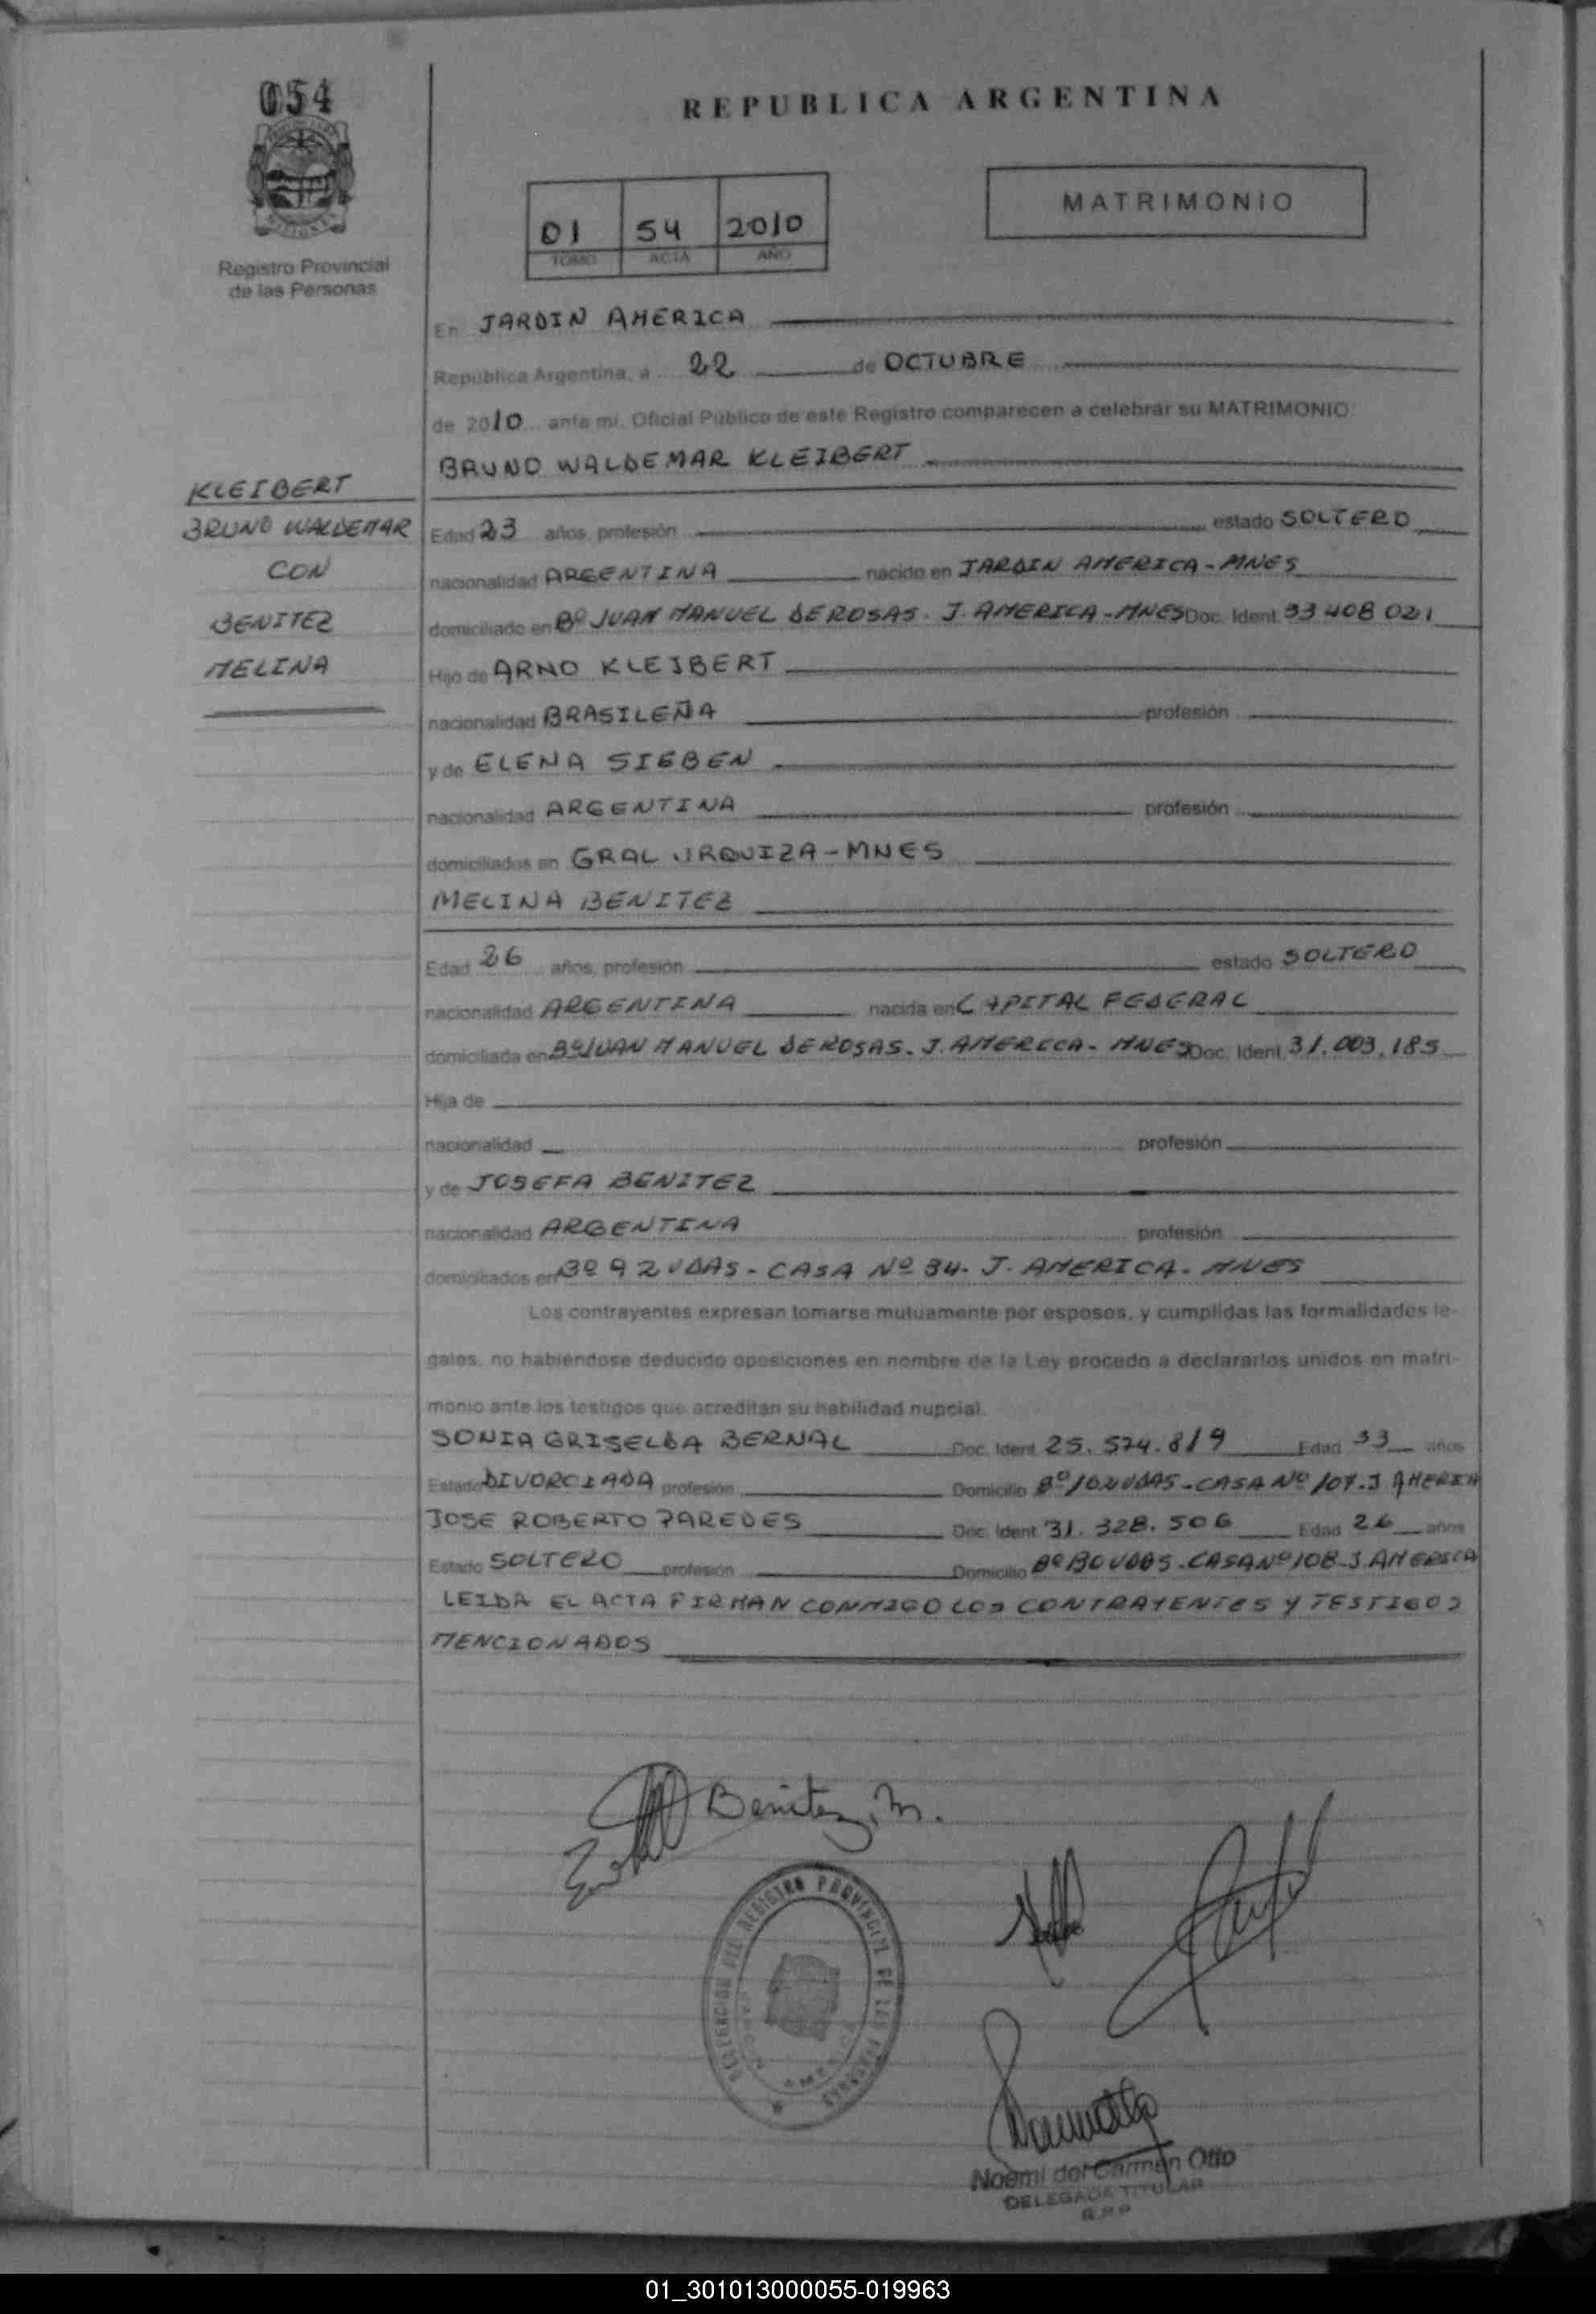 054
REPUBLICA ARGENTINA
MATRIMONIO
01 54 2010
TOMO ACTA AÑO
Registro Provincial
de las Personas
En JARDIN AMERICA
República Argentina, a 22 de OCTUBRE
de 2010 ante mi, Oficial Público de este Registro comparecen a celebrar su MATRIMONIO
BRUNO WALDEMAR KLEIBERT
KLEIBERT
BRUNO WALDEMAR
CON
BENITEZ
MELINA
Edad 23 años, profesión estado SOLTERO
nacionalidad ARGENTINA nacido en JARDIN AMERICA - MNES
domiciliado en Bº JUAN MANUEL DE ROSAS. J. AMERICA - MNES Doc. Ident. 33 408 021
Hijo de ARNO KLEIBERT
nacionalidad BRASILEÑA profesión
y de ELENA SIEBEN
nacionalidad ARGENTINA profesión
domiciliados en GRAL URQUIZA - MNES
MELINA BENITEZ
Edad 26 años, profesión estado SOLTERO
nacionalidad ARGENTINA nacida en CAPITAL FEDERAL
domiciliada en Bº JUAN MANUEL DE ROSAS. J. AMERICA - MNES Doc. Ident. 31.003.185
Hija de
nacionalidad profesión
y de JOSEFA BENITEZ
nacionalidad ARGENTINA profesión
domiciliados en Bº 92 VDAS - CASA Nº 34. J. AMERICA - MNES
Los contrayentes expresan tomarse mutuamente por esposos, y cumplidas las formalidades le-
gales, no habiéndose deducido oposiciones en nombre de la Ley procedo a declararlos unidos en matri-
monio ante los testigos que acreditan su habilidad nupcial.
SONIA GRISELDA BERNAL Doc. Ident. 25.574.819 Edad 33 años
Estado DIVORCIADA profesión Domicilio Bº VDAS - CASA Nº 107 - J
JOSE ROBERTO PAREDES Doc. Ident. 31.328.506 Edad 26 años
Estado SOLTERO profesión Domicilio Bº VDAS - CASA Nº 108 - J. AMERICA
LEIDA EL ACTA FIRMAN CONMIGO LOS CONTRAYENTES Y TESTIGOS
MENCIONADOS
Benitez, M.
DELEGACION DEL REGISTRO PROVINCIAL DE LAS PERSONAS
JARDIN AMERICA
Noemi del Carmen Otto
DELEGADA TITULAR
R.P.P
01_301013000055-019963